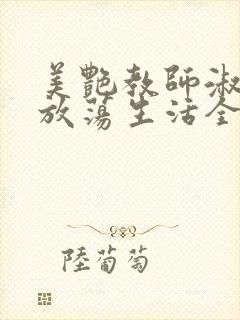 美艷教師淑
放蕩生活全
陸葡萄